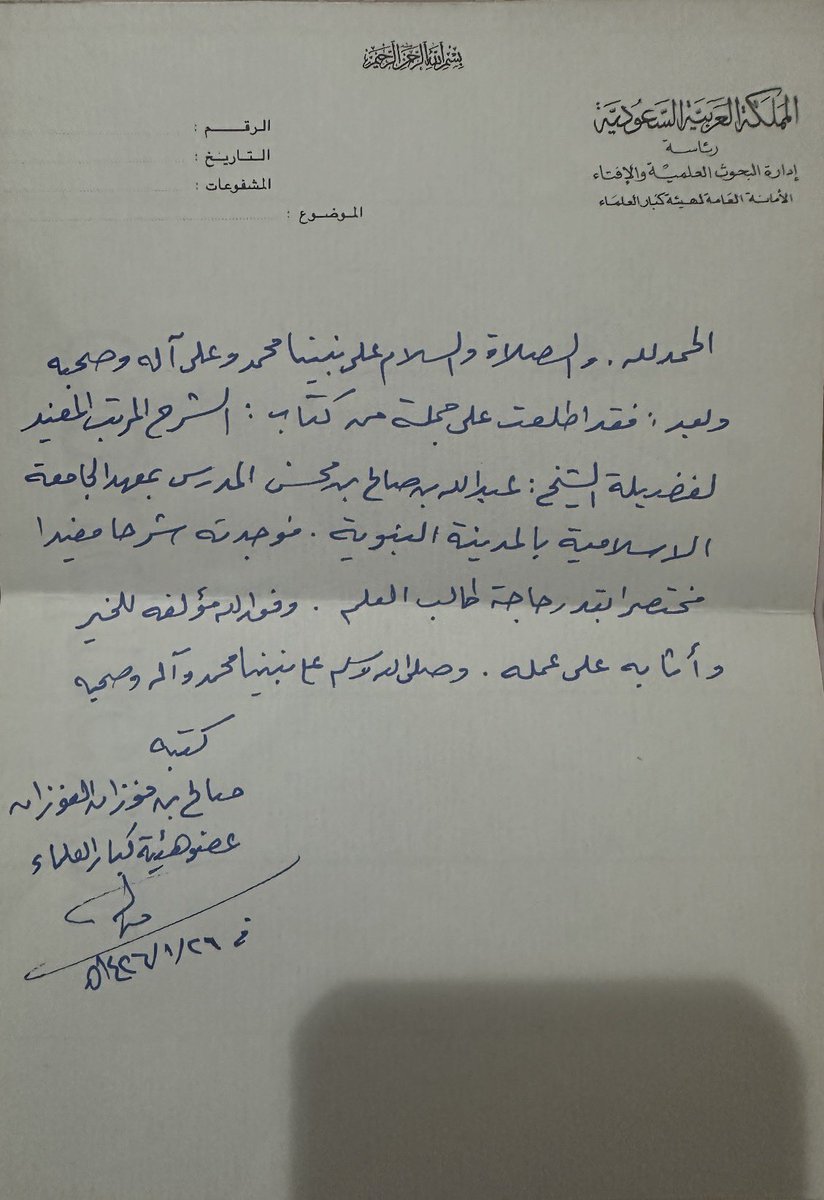 بسم الله الرحمن الرحيم
المملكة العربية السعودية
رئاسة
إدارة البحوث العلمية والإفتاء
الأمانة العامة لهيئة كبار العلماء
الرقم :
التاريخ :
المشفوعات :
الموضوع :
الحمد لله . والصلاة والسلام على نبينا محمد وعلى آله وصحبه
وبعد : فقد اطلعت على جملة من كتاب : الشرح المرتب المفيد
لفضيلة الشيخ : عبد الله بن صالح بن محسن المدرس بمعهد الجامعة
الاسلامية بالمدينة النبوية . فوجدته شرحا مفيدا
مختصرا بقدر حاجة طالب العلم . وفق الله مؤلفه للخير
وأثابه على عمله . وصلى الله وسلم على نبينا محمد وآله وصحبه
كتبه
صالح بن فوزان الفوزان
عضو هيئة كبار العلماء
في ١٤٢٦/١/٢٩هـ